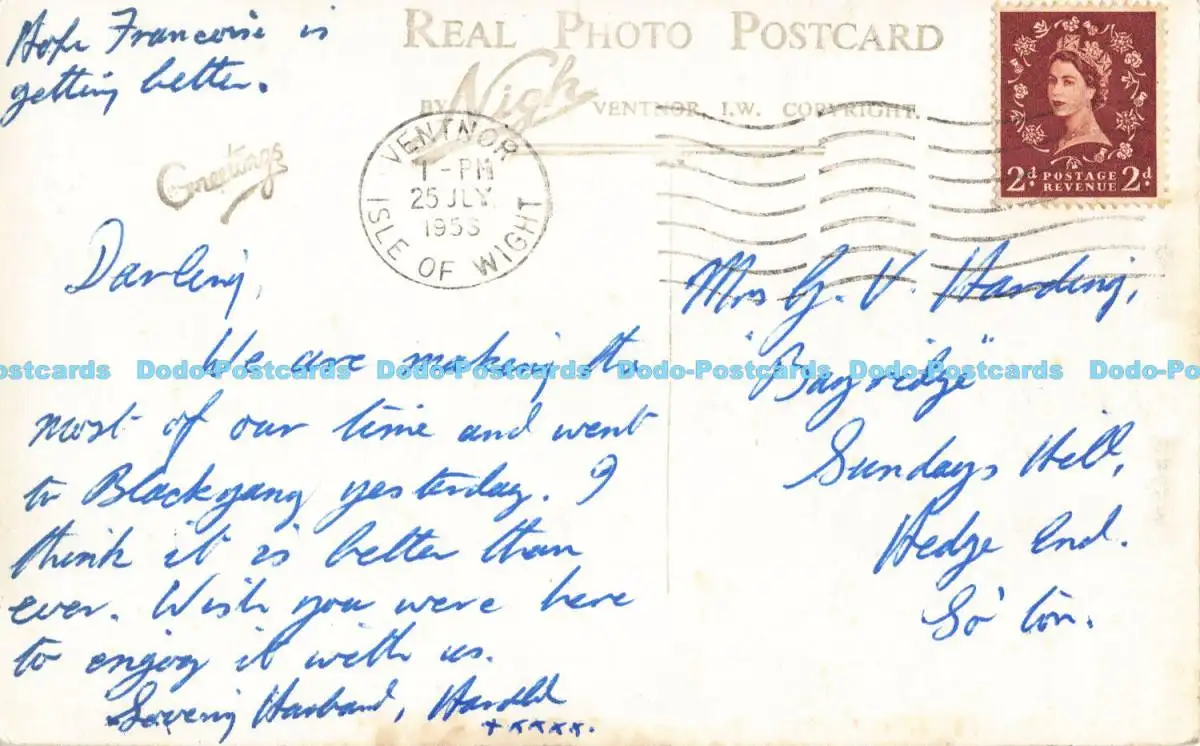 Hope Francoise is
getting better.
REAL PHOTO POSTCARD
BY Nigh VENTNOR, I.W. COPYRIGHT.
Greetings
VENTNOR
1-PM
25 JLY
ISLE OF WIGHT
2d POSTAGE REVENUE 2d
Darling,
We are making the
most of our time and went
to Blackgang yesterday. I
think it is better than
ever. Wish you were here
to enjoy it with us.
Loving Husband, Harold
+xxxx.
Mrs G. V. Harding,
"Bayridge"
Sundays Hill,
Hedge End.
So'ton.
Dodo-Postcards Dodo-Postcards Dodo-Postcards Dodo-Postcards Dodo-Postcards Dodo-Postcards Dodo-Postcards Dodo-Po